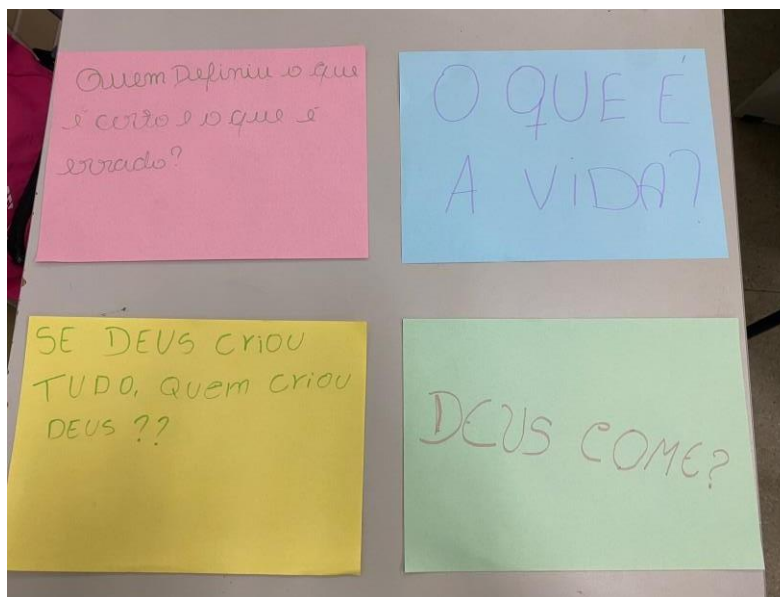 Quem Definiu o que
é certo e o que é
errado?
O QUE É
A ViDA?
SE DEUS criou
TUDO, Quem criou
DEUS ??
DEUS COME?